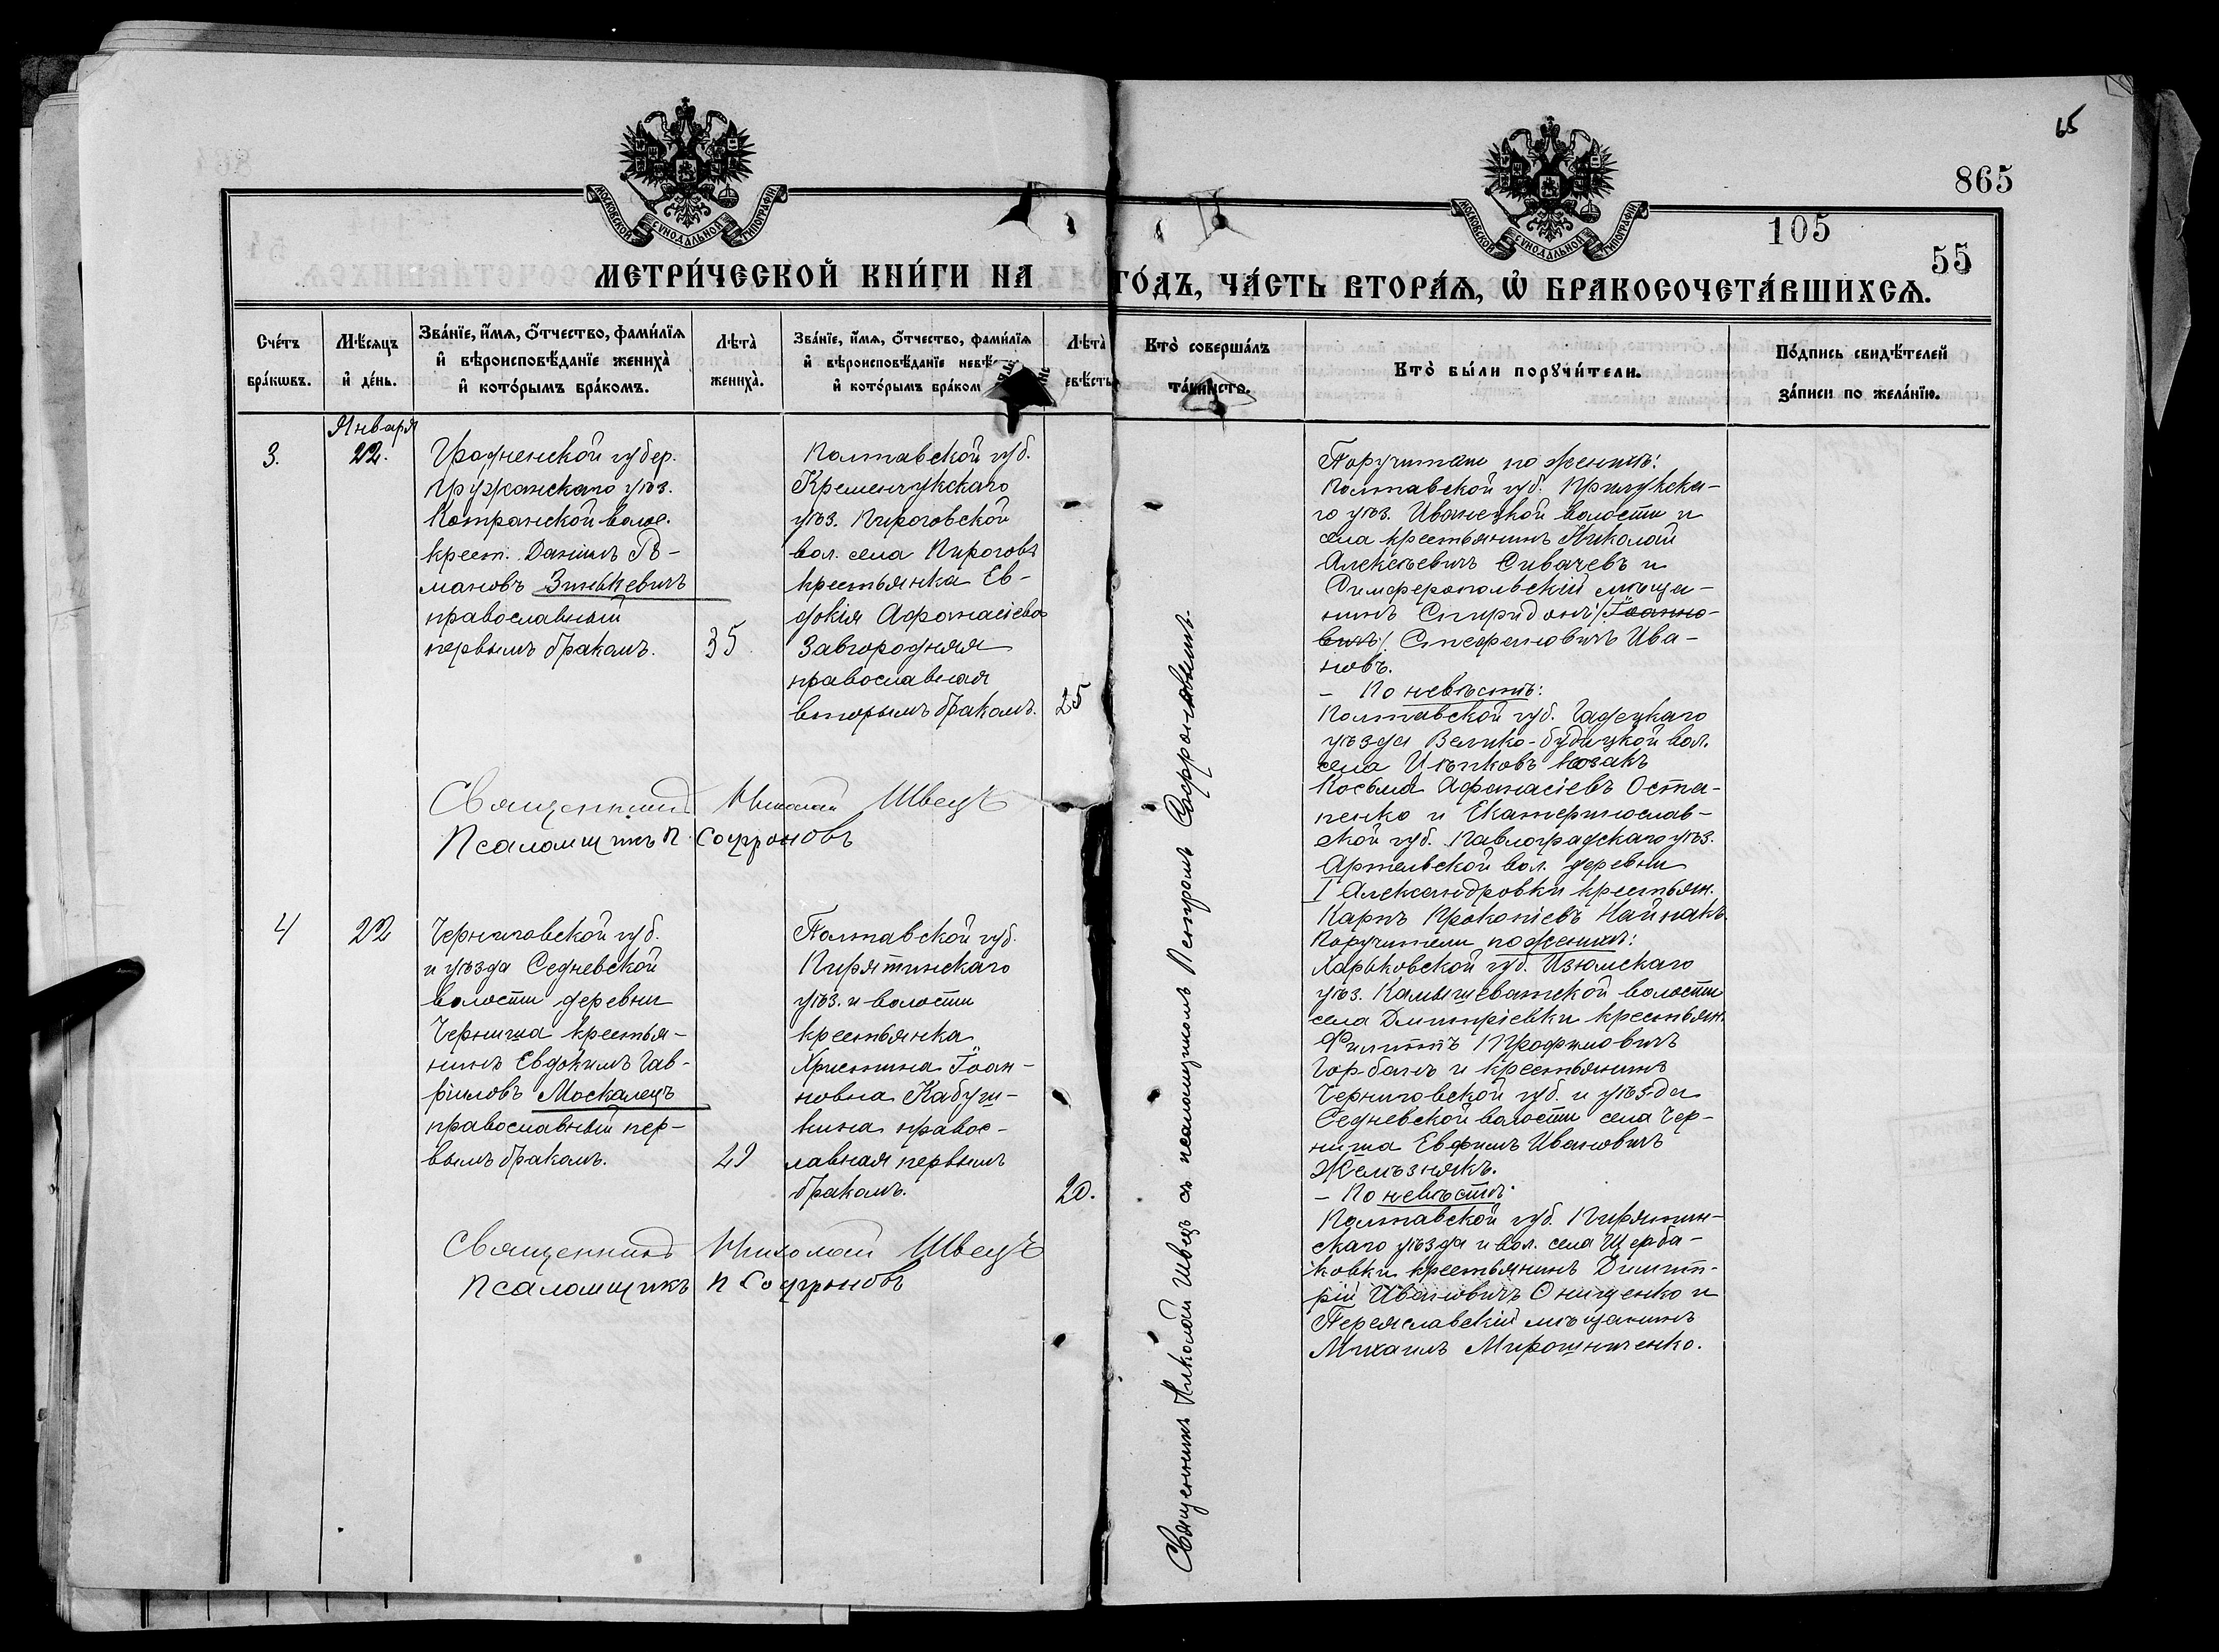 65
865
105
55
МОСКОВСКОЙ СУНОДАЛЬНОЙ ТИПОГРАФІИ
МОСКОВСКОЙ СУНОДАЛЬНОЙ ТИПОГРАФІИ
МЕТРИ́ЧЕСКОЙ КНИ́ГИ НА ГО́ДЪ, ЧА́СТЬ ВТОРА́Я, Ѡ҆ БРАКОСОЧЕТА́ВШИХСЯ.
Сче́тъ
бра́кωвъ.
Мѣ́сяцъ
и҆ де́нь.
Зва́нїе, и҆́мя, о҆́тчество, фами́лїя
и҆ вѣроисповѣ́данїе жениха̀
и҆ кото́рымъ бра́комъ.
Лѣта̀
жениха̀.
Зва́нїе, и҆́мя, о҆́тчество, фами́лїя
и҆ вѣроисповѣ́данїе невѣ
и҆ кото́рымъ брако́м
Лѣта̀
евѣсты
Кто̀ соверша́лъ
та́инсто.
Кто̀ бы́ли порꙋчи́тели.
По́дпись свидѣ́телей
за́писи по жела́нїю.
Января
3.
22.
Гродненской губер.
Пружанскаго уѣз.
Котранской волос.
крест. Данiилъ Ро-
мановъ Зинькевичъ
православный
первымъ бракомъ.
35.
Полтавской губ.
Кременчукскаго
уѣз. Пироговской
вол. села Пироговъ
крестьянка Ев-
докія Афанасіева
Завгородняя
православная
вторымъ бракомъ.
25
Священникъ Николай Швецъ
Псаломщикъ П. Софроновъ
Священникъ Николай Швецъ съ псаломщикомъ Петромъ Софроновымъ.
Поручители по женихѣ:
Полтавской губ. Прилукска-
го уѣз. Иваницкой волости и
села крестьянинъ Николай
Алексѣевичъ Сивачевъ и
Симферопольскій мѣща-
нинъ Спиридонъ / Іоанно-
вичъ / Стефановичъ Ива-
новъ.
- По невѣстѣ:
Полтавской губ. Гадецкаго
уѣзда Велико-будицкой вол.
села козакъ
Косьма Афанасіевъ Оста-
пенко и Екатеринослав-
ской губ. Павлоградскаго уѣз.
Артельской вол. деревни
I Александровки крестьян.
Карпъ Прокопіевъ
4
22
Черниговской губ.
и уѣзда Седневской
волости деревни
Черниша крестья-
нинъ Евдокимъ Гав-
риловъ Москалецъ
православный пер-
вымъ бракомъ.
29
Полтавской губ.
Пирятинскаго
уѣз. и волости
крестьянка
Христина Іоан-
новна Кабуш-
кина правос-
лавная первымъ
бракомъ.
20.
Священникъ Николай Швецъ
Псаломщикъ П Софроновъ
Поручители по женихѣ:
Харьковской губ. Изюмскаго
уѣз. Камышеватской волости
села Дмитріевки крестьян.
Филиппъ Трофимовичъ
Горбань и крестьянинъ
Черниговской губ. и уѣзда
Седневской волости села Чер-
ниша Евфимъ Ивановичъ
Желѣзнякъ.
- По невѣстѣ:
Полтавской губ. Пирятин-
скаго уѣзда и вол. села Щерба-
ковки крестьянинъ Димит-
рій Ивановичъ Онищенко и
Переяславскій мѣщанинъ
Михаилъ Мирошниченко.